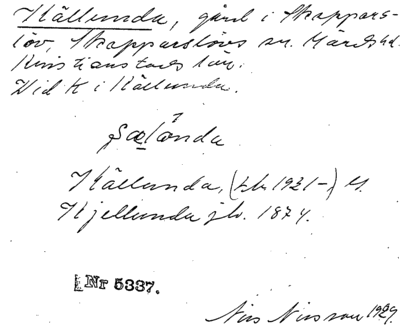 Källunda, gård i Skappars-
löv, Skapparslövs sn. Härads hd.
Kristianstads län.
Vid K i Källunda.
Källunda, (tb. 1921-) H.
Kjellunda jb. 1874.
Nr 5337.
Nils Nilsson 1929.